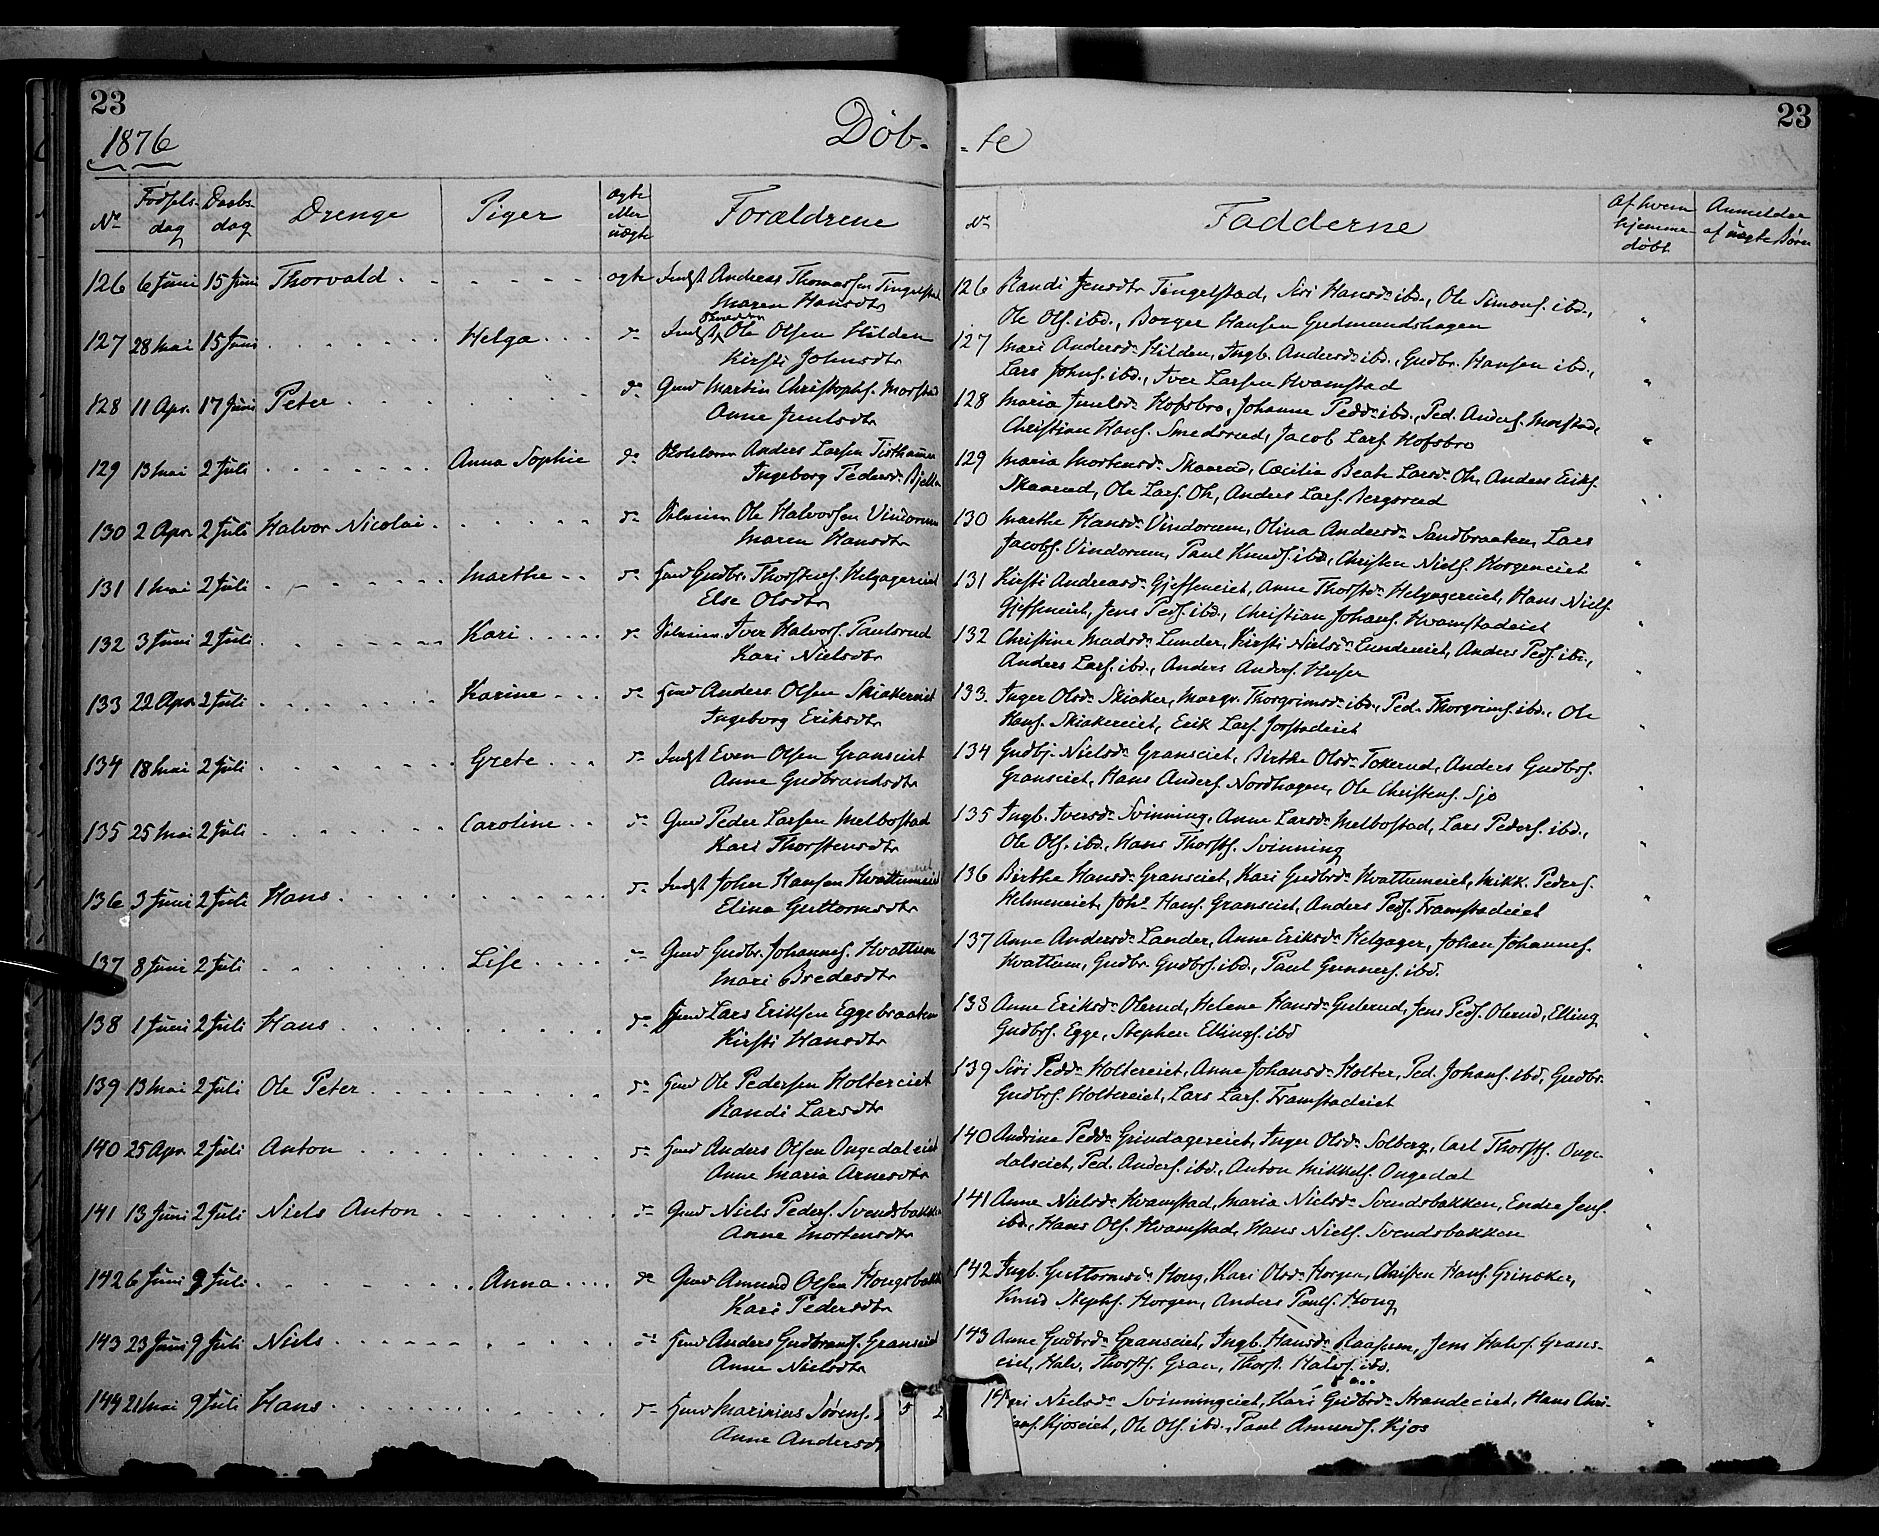 23
1876
Døb-
No
Fødsels-
dag
Daabs-
dag
Drenge
Piger
ægte
eller
uægte
Forældrene
126 6 Juni 15 Juni Thorvald ægte Indst Andreas Thomassen Tingelstad
Maren Hansdtr
127 28 Mai 15 Juni Helga do Indst Ole Olsen Hilden
Kirsti Johnsdtr
128 11 Apr. 17 Juni Peter do Gmd Martin Christophs. Morstad
Anne Juulsdtr
129 13 Mai 2 Juli Anna Sophie do Anders Larsen
Ingeborg Pedersdr
130 2 Apr 2 Juli Halvor Nicolai do Ole Halvorsen Vindorum
Maren Hansdtr
131 1 Mai 2 Juli Marthe do Hmd Gudbr. Thorstens. Helgagereiet
Else Olsdtr
132 3 Juni 2 Juli Kari do Iver Halvors. Paulsrud
Kari Nielsdtr
133 22 Apr 2 Juli Karine do Hmd Anders Olsen Skiakereiet
Ingeborg Eriksdtr
134 18 Mai 2 Juli Grete do Indst Even Olsen Granseiet
Anne Gudbrandsdtr
135 25 Mai 2 Juli Caroline do Gmd Peder Larsen Melbostad
Kari Thorstensdtr
136 3 Juni 2 Juli Hans do Indst Johan Hansen Hvattumeiet
Elina Guttormsdtr
137 8 Juni 2 Juli Lise do Gmd Gudbr. Johannes. Hvattum
Mari Bredesdtr
138 1 Juni 2 Juli Hans do Hmd Lars Eriksen Eggebraaten
Kirsti Hansdtr
139 13 Mai 2 Juli Ole Peter do Hmd Ole Pedersen Holtereiet
Randi Larsdtr
140 25 Apr 2 Juli Anton do Hmd Anders Olsen Ongedaleiet
Anne Maria Arnesdtr
141 13 Juni 2 Juli Niels Anton do Gmd Niels Peders. Svendsbakken
Anne Mortensdtr
142 6 Juni 9 Juli Anna do Gmd Amund Olsen Hongsbakk
Kari Pedersdtr
143 23 Juni 9 Juli Niels do Hmd Anders Gudbrands. Granseiet
Anne Nielsdtr
144 21 Mai 9 Juli Hans do Hmd Marinius Sørens.
Anne Andersd
23
-te
No
Fadderne
Af hvem
hjemme
døbt
Anmelder
af uægte Børn
126 Randi Jensdtr Tingelstad, Siri Hansdr ibd., Ole Simons. ibd.,
Ole Ols. ibd., Borger Hansen Gudmundshagen
127 Mari Andersdr Hilden, Ingb. Andersdr ibd., Gudbr. Hansen ibd.,
Lars Johns. ibd., Iver Larsen Hvamstad
128 Maria Juulsdr Hofsbro, Johanne Pedsdr ibd., Ped. Anders. Morstad,
Christian Hans. Smedsrud, Jacob Lars. Hofsbro
129 Maria Mortensdr Skaarud, Cæcilia Beate Larsdr Oh, Anders Eriks.
Skaarud, Ole Lars. Oh, Anders Lars. Bergsrud
130 Marthe Hansdr Vindorum, Olina Andersdr Sandbraaten, Lars
Jacobs. Vindorum, Paul Knuds. ibd., Christen Niels. Horgeneiet
131 Kirsti Andreasdr Gjefseneiet, Anne Thorstdr Helgagereiet, Hans Niels.
Gjefseneiet, Jens Peds. ibd., Christian Johans. Hvamstadeiet
132 Christine Madsdr Lunder, Kirsti Nielsdr Lundereiet, Anders Peds. ibd.,
Anders Lars. ibd., Anders Anders. Huser
133. Inger Olsdr Skiaker, Margr. Thorgrimsdr ibd., Ped. Thorgrims. ibd., Ole
Hans. Skiakereiet, Erik Lars. Jorstadeiet
134 Gudbj. Nielsdr Granseiet, Birthe Olsdr Tokerud, Anders Gudbrs.
Granseiet, Hans Anders. Nordhagen, Ole Christens. Sjo
135 Ingb. Iversdr Svinning, Anne Larsdr Melbostad, Lars Peders. ibd.,
Ole Ols. ibd., Hans Thorsts. Svinning
136 Birthe Hansdr Granseiet, Kari Gudbrdr Hvattumeiet, Mikk. Peders.
Helmeneiet, Johs Hans. Granseiet, Anders Peds. Framstadeiet
137 Anne Andersdr Lander, Anne Eriksdr Helgager, Johan Johannes.
Hvattum, Gudbr. Gudbrs. ibd., Paul Gunners. ibd.
138 Anne Eriksdr Olerud, Helene Hansdr Gulerud, Jens Peds. Olerud, Elling
Gudbrs. Egge, Stephen Ellings. ibd
139 Siri Pedsdr Holtereiet, Anne Johansdr Holter, Ped. Johans. ibd., Gudbr.
Gudbrs. Holtereiet, Lars Lars. Framstadeiet
140 Andrine Pedsdr Grindagereiet, Inger Olsdr Solberg, Carl Thorsts. Onge-
dalseiet, Ped. Anders. ibd., Anton Mikkels. Ongedal
141 Anne Nielsdr Hvamstad, Maria Nielsdr Svendsbakken, Endre Jens.
ibd., Hans Ols. Hvamstad, Hans Niels. Svendsbakken
142 Ingb. Guttormsdr Hong, Kari Olsdr Horgen, Christen Hans. Grinaker,
Knud Stephs. Horgen, Anders Pauls. Hong
143 Anne Gudbrdr Granseiet, Ingb. Hansdr Raasum, Jens Halvs. Grans-
eiet, Halv. Thorsts. Gran, Thorst. Halvs. ibd.
Nielsdr Svinningeiet, Kari Gudbrdr Strandeeiet, Hans Chri-
Kjoseiet, Ole Ols. ibd., Paul Amunds. Kjos